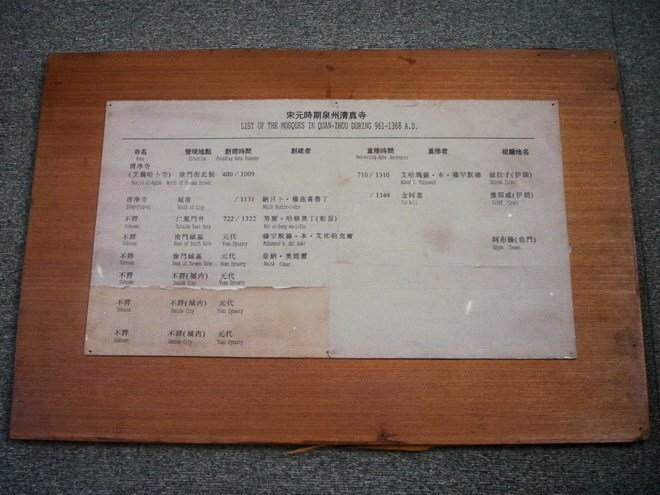 宋元時期泉州清真寺
LIST OF THE MOSQUES IN QUAN-ZHOU DURING 961-1368 A.D.
寺名 發現地點 創建時間 創建者 重修時間 重修者 祖籍地名
Name Situation Founding date Founder Renovating date Renovator
清淨寺
(艾蘇哈卜寺) 塗門街北側 400/1009 710/1310 艾哈瑪德·本·穆罕默德 設拉子(伊朗)
Masjid al-Ashab North of Tu-men Street Ahmad b. Muhammad Shiraz (Iran)
清淨寺 城南 /1131 納只卜·穆茲喜魯丁 /1349 金阿裏
Qing-jing-si South of City Najib Muzhir-i-Din Jin A-li
不詳 仁風門外 722/1322
Unknown Outside East Gate
不詳 南門城基 元代 穆罕默德·本·艾比伯克爾 阿布揚(也門)
Unknown Base of South Gate Yuan Dynasty Muhammad b. Abi Bakr Abyan (Yemen)
不詳 塗門城基 元代 奈納·奧姆爾
Unknown Base of Tu-men Gate Yuan Dynasty Naina 'Umar
不詳 不詳(城內) 元代
Unknown Inside City Yuan Dynasty
不詳 不詳(城內) 元代
Unknown Inside City Yuan Dynasty
不詳 不詳(城內) 元代
Unknown Inside City Yuan Dynasty